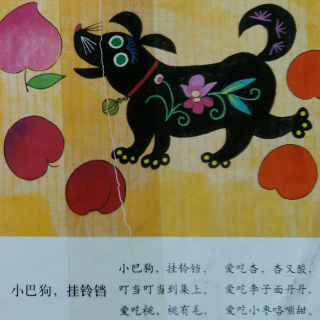 小巴狗，挂铃铛
小巴狗，挂铃铛，
叮当叮当到集上。
爱吃桃，桃有毛，
爱吃杏，杏又酸，
爱吃李子面丹丹，
爱吃小枣咯嘣甜。